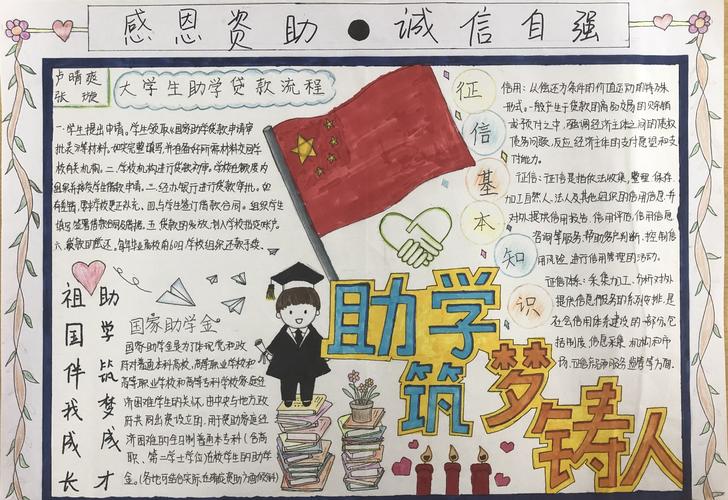 感恩资助●诚信自强
卢晴爽
张璇
大学生助学贷款流程
一.学生提出申请。学生领取《国家助学贷款申请审
批表》等材料,如实完整填写,并准备好所需材料交回学
校有关机构。二.学校机构进行贷款初审。学校在额度内
组织并接受学生借款申请。三.经办银行进行贷款审批。如
有差错,要求学校更正补充。四.与学生签订借款合同。组织学生
填写、签署借款合同及借据。五.贷款的发放,划入学校指定账户。
六.贷款的偿还。每年毕业离校前60日学校组织还款手续。
征信基本知识
信用:从偿还为条件的价值运动的特殊
形式。一般产生于贷款的商品交易的
或预付之中,强调经济主体之间的债权
债务问题,反应经济主体的支付愿望和支
付能力。
征信:征信是指依法收集、整理、保存、
加工自然人、法人及其他组织的信用信息,并
对外提供信用报告、信用评估、信用信息
咨询等服务,帮助客户判断、控制信
用风险,进行信用管理的活动。
征信体系:采集、加工、分析对外
提供信息服务的系列安排,是
社会信用体系建设的一部分,包
括制度、信息采集、机构和市
场
祖国伴我成长
助学筑梦成才
国家助学金
国家助学金是为了体现党和政
府对普通本科高校、高等职业学校和
高等职业学校和高等专科学校家庭经
济困难学生的关怀,由中央与地方政
府共同出资设立的,用于资助家庭经
济困难的全日制普通本专科(含高
职、第二学士学位)在校学生的助学
金。
助学
筑梦铸人